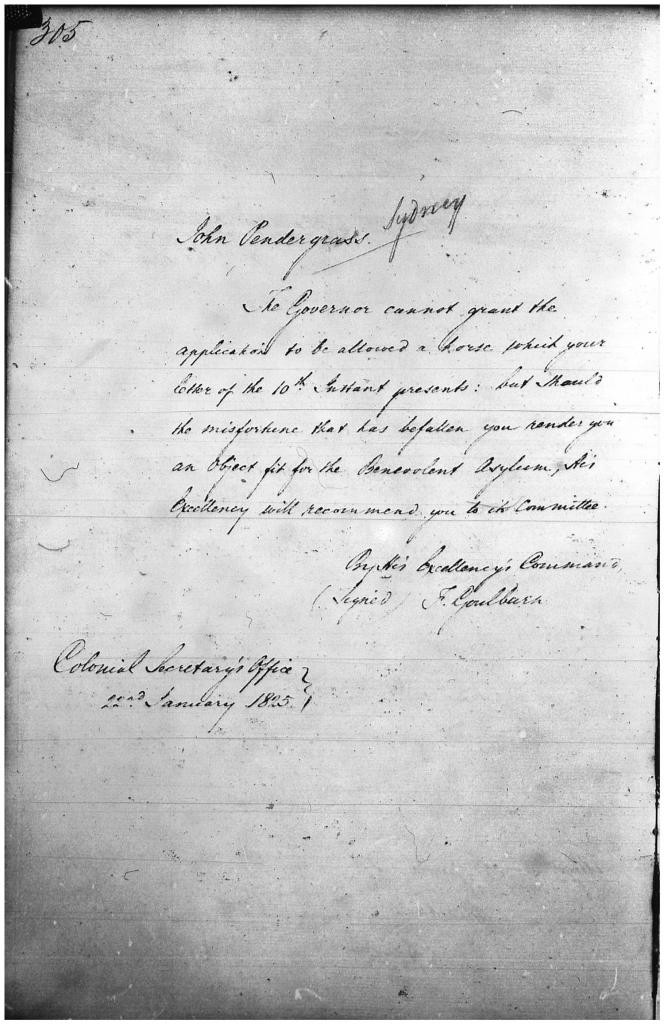 305
Sydney
John Pendergrass.
The Governor cannot grant the
application to be allowed a horse which your
letter of the 10th Instant presents: but should
the misfortune that has befallen you render you
an object fit for the Benevolent Asylum, His
Excellency will recommend you to its Committee.
By His Excellency's Command,
(Signed) F. Goulburn
Colonial Secretary's Office
22nd January 1825.